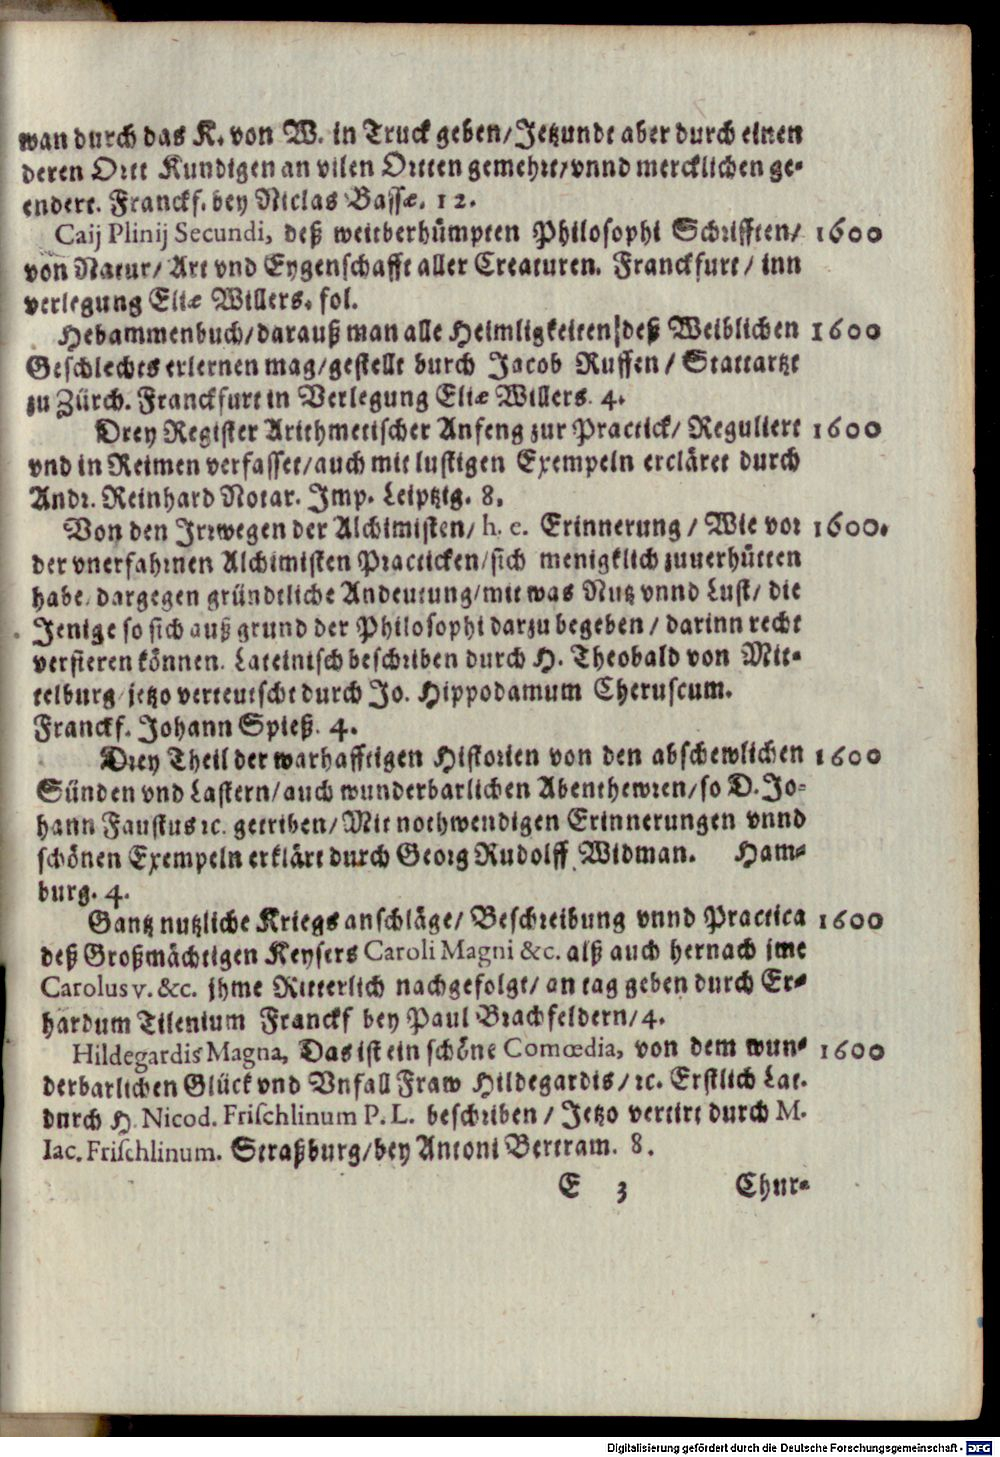 wan durch das K. von W. in Truck geben/ Jetzundt aber durch einen
deren Ortt Kundigen an vilen Ortten gemehrt/ vnnd mercklichen ge-
endert. Franckf. bey Niclas Bassæ. 12.
Caij Plinij Secundi, deß weitberhümpten Philosophi Schrifften/ 1600
von Natur/ Art vnd Eygenschafft aller Creaturen. Franckfurt/ inn
verlegung Eliæ Willers. fol.
Hebammenbuch/ darauß man alle Heimligkeiten deß Weiblichen 1600
Geschlechts erlernen mag/ gestellt durch Jacob Ruffen/ Stattartzt
zu Zürch. Franckfurt in Verlegung Eliæ Willers. 4.
Drey Register Arithmetischer Anfeng zur Practick/ Reguliert 1600
vnd in Reimen verfasset/ auch mit lustigen Exempeln ercläret durch
Andr. Reinhard Notar. Imp. Leiptzig. 8.
Von den Irrwegen der Alchimisten/ h. e. Erinnerung/ Wie vor 1600.
der vnerfahrnen Alchimisten Practicken/ sich menigklich zuuerhütten
habe/ dargegen gründtliche Andeutung/ mit was Nutz vnnd Lust/ die
Jenige so sich auß grund der Philosophi darzu begeben/ darinn recht
versieren können. Lateinisch beschriben durch H. Theobald von Mit-
telburg/ jetzo verteutscht durch Jo. Hippodamum Cheruscum.
Franckf. Johann Spieß. 4.
Drey Theil der warhafftigen Historien von den abschewlichen 1600
Sünden vnd Lastern/ auch wunderbarlichen Abenthewren/ so D. Jo-
hann Faustus ꝛc. getriben/ Mit nothwendigen Erinnerungen vnnd
schönen Exempeln erklärt durch Georg Rudolff Widman. Ham-
burg. 4.
Gantz nutzliche Kriegs anschläge/ Beschreibung vnnd Practica 1600
deß Großmächtigen Keysers Caroli Magni &c. alß auch hernach jme
Carolus v. &c. jhme Ritterlich nachgefolgt/ an tag geben durch Er-
hardum Tilenium Franckf bey Paul Brachfeldern/ 4.
Hildegardis Magna, Das ist ein schöne Comœdia, von dem wun- 1600
derbarlichen Glück vnd Vnfall Fraw Hildegardis/ ꝛc. Erstlich Lat.
durch H. Nicod. Frischlinum P. L. beschriben/ Jetzo vertirt durch M.
Iac. Frischlinum. Straßburg/ bey Antoni Bertram. 8.
E 3 Chur-
Digitalisierung gefördert durch die Deutsche Forschungsgemeinschaft - DFG